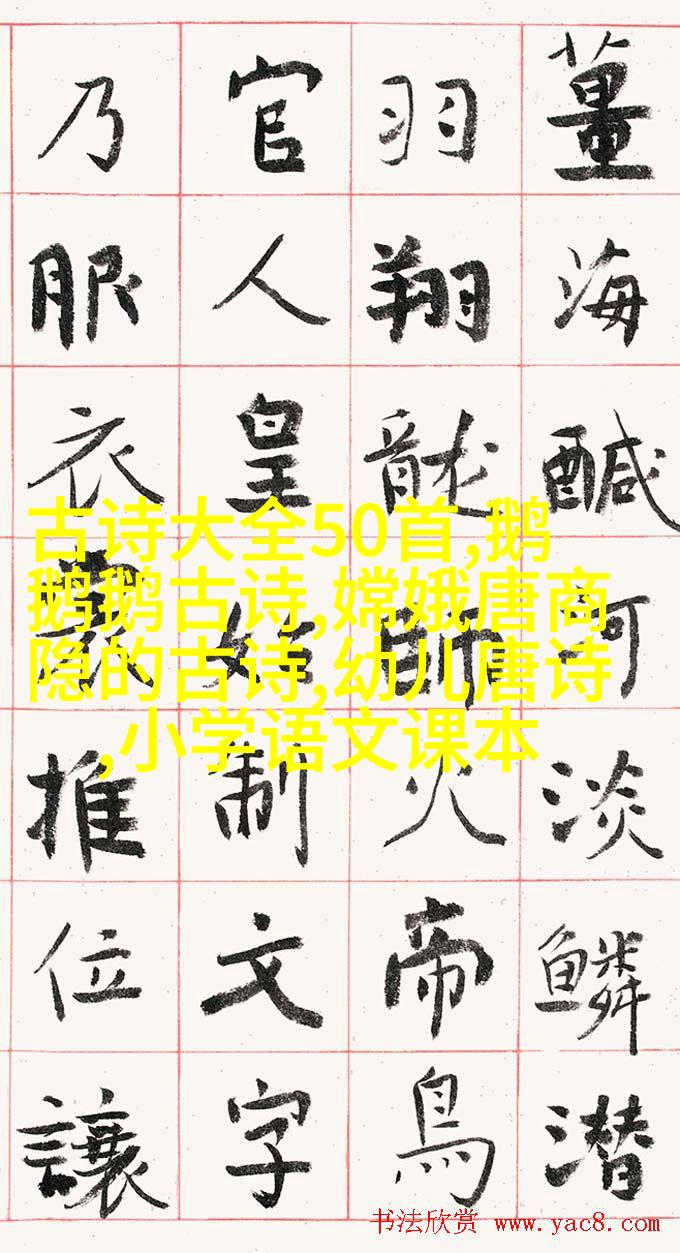 薑海醎河淡鱗潜
羽翔龍師火帝鳥
官人皇始制文字
乃服衣裳推位讓
古诗大全50首,鹅
鹅鹅古诗,嫦娥唐商
隐的古诗,幼儿唐诗
,小学语文课本
书法欣赏 www.yac8.com